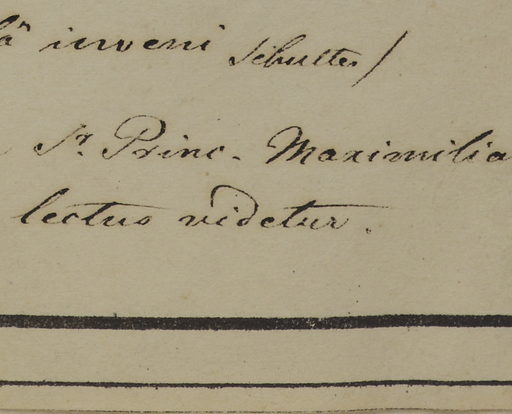 inveni Schultes /
Sr. Princ. Maximilia
lectus videtur.